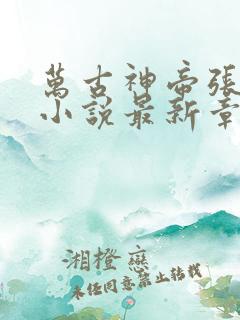 萬古神帝張
小說最新章
湘橙戀
未经同意禁止转载